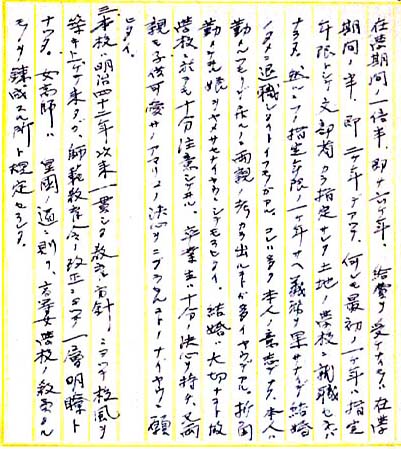 在学期間ノ一倍半、即チ六ケ年、給費ヲ受ケナイモノハ在学
期間ノ半、即二ケ年デアツテ、何レモ最初ノ一ケ年ハ指定
年限トシテ文部省カラ指定サレタ土地ノ学校ニ就職セネバ
ナラヌ。然ルニコノ指定年限ノ一ケ年サヘ義務ヲ果サナイデ結婚
ノタメニ退職シタイトイフ者ガアル。コレハ多ク本人ノ意志デナク、本人ハ
勤メルモ、両親ノ考カラ出ルコトガ多イヤウデアル。折角
勤メタ娘ヲヤメサセナイヤウニシテモラヒタイ。結婚ハ大切ナコト故
学校ニ於テモ十分注意シテヰル。卒業生ハ十分ノ決心ヲ持チ、又両
親モ子供可愛サノアマリコノ決心ヲニブラスコトノナイヤウニ願
ヒタイ。
三、本校ハ明治四十三年以来一貫シタ教育方針ニヨツテ校風ヲ
築キ上ゲテ来タガ、師範教育令ノ改正ニヨツテ一層明瞭ト
ナツタ。女高師ハ皇国ノ道ニ則リ、高等女学校ノ教員タル
モノヲ錬成スル所ト規定セラレタ。